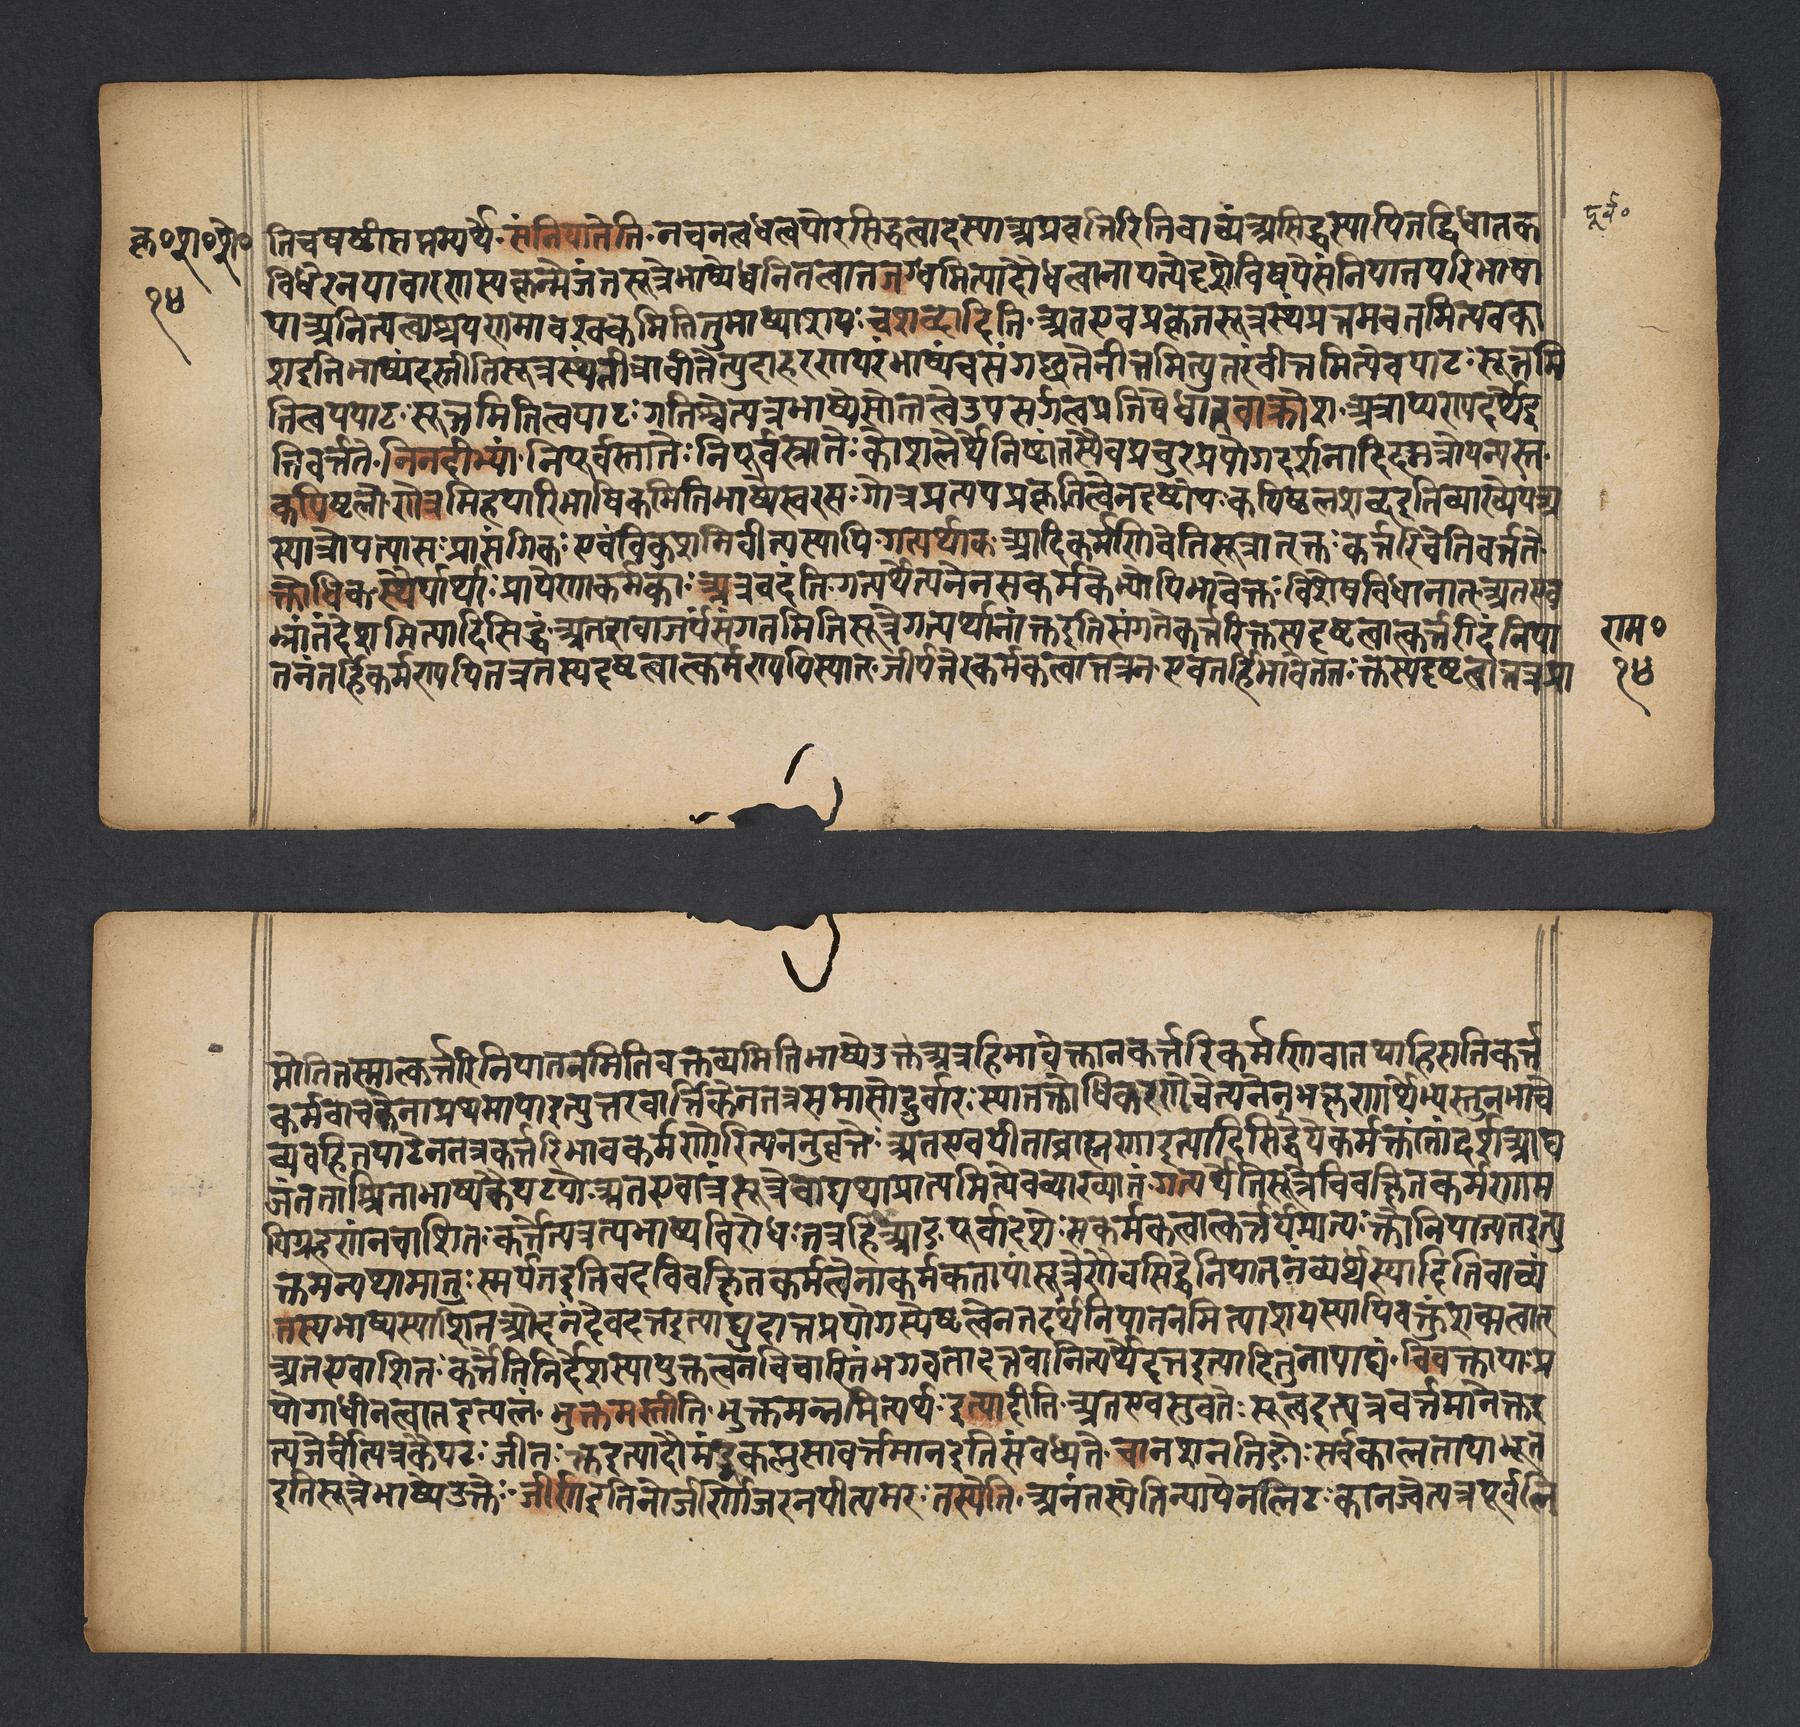 कृ०श०शे०
१४
पूर्व०
तिचषष्ठीसप्तम्यर्थे संनिपातेति नचनत्वधत्वयोरसिद्धत्वादस्याअप्रवृत्तिरितिवाच्यंअसिद्धस्यापितद्विधातक
विधेरनयावारणस्यकृन्मेजंतसूत्रेभाष्येध्वनितत्वात्तजग्धमित्यादौधत्वानापत्येदृशेविषयेसंनिपातपरिभाषा
याअनित्यत्व मित्तितुभाष्याशयः चशब्दादिति अतएवप्रकृतसूत्रस्थंप्रत्तमवत्तमित्यवका
शइतिभाष्यंदस्तीतिसूत्रस्थंनीत्तावीत्तेत्युदाहरणपरंभाष्यंचसंगछतेनीत्तमित्युत्तरंवीत्तमित्येवपाठः सूत्तमि
तित्वपपाठः सूत्तमितित्वपाठः गतिश्चेत्यत्रभाष्येसोतत्वेउपसर्गत्वप्रतिषेधात् अत्राप्यरापदर्थेइ
तिवर्त्तते निनदीभ्यां निपूर्वस्नातेः निपूर्वस्नातेः कौशलेर्थेनिष्टांतस्यैवप्रचुरप्रयोगदर्शनादिदमत्रोपन्यस्त
कपिष्टलो गोत्रमिहपारिभाषिकमितिभाष्येस्वरसः गोत्रप्रत्ययप्रकृतित्वेनदृष्टोयः कपिष्ठलशब्दइतिव्याख्येयंअ
स्यात्रोपन्यासः प्रासंगिकः एवंविकुशमिवीत्यस्यापि गत्यर्थाक आदिकर्मणिचेतिसूत्रात् क्तः कर्त्तरिचेतिवर्त्तते
क्तोधिक स्थैर्यार्थाः प्रायेणाकर्मकाः अत्रवदंति गत्यर्थेत्यनेनसकर्मकेभ्योपिभावेक्तः विशेषविधानात् अतएव
भ्रांतंदेशमित्यादिसिद्धं अतएवाजर्यंसंगतमितिसूत्रेगत्यर्थानांक्तइतिसंगतेकर्त्तरिक्तस्यदृष्टत्वात्कर्त्तरीदंनिपा
तनंतर्हिकर्मण्यपितत्रतस्यदृष्टत्वात्कर्मण्यपिस्यात् जीर्यतेरकर्मकत्वात्तत्रन एवंतर्हिभावेततः क्तस्यदृष्टत्वात्तत्रप्रा
राम०
१४
प्नोतितस्मात्कर्त्तरिनिपातनमितिवक्तव्यमितिभाष्येउक्तंअत्रहिभावेक्तानकर्त्तरिकर्मणिवातथाहिसतिकर्त्तृ
कर्मवाचकेनाप्रथमायाइत्युत्तरवार्त्तिकेनतत्रसमासोदुर्वारः स्यात्क्तोधिकरणेचेत्यनेन स्तुनभावे
व्यवहितपाठेनतत्रकर्त्तरिभावकर्मणोरित्यननुवृत्तेः अतएवपीताब्राह्मणाइत्यादिसिद्धयेकर्मक्तांतादर्शआद्य
जंतताश्रिताभाष्यकैयटयोः अतएवात्रसूत्रेचाद्यथाप्राप्तमित्येवव्याख्यातं गत्यर्थेतिसूत्रेविवक्षितकर्मणाम
पिग्रहणांनचाशितः कर्त्तेत्यत्रत्यभाष्यविरोधः तत्रहिआङ् पूर्वादशेः सकर्मकत्वात्कर्त्तर्यप्राप्तः क्तोनिपात्यतइत्यु
क्तमन्यथामातुः स्मर्यतइतिवदविवक्षितकर्मत्वेनाकर्मकतायांसूत्रेणैवसिद्धेनिपातनंव्यर्थंस्यादितिवाच्यं
तस्यभाष्यस्याशितओदनंदेवदत्तइत्याद्युदात्तप्रयोगस्येष्टत्वेनतदर्थंनिपातनमित्याशयस्यापिवक्तुंशक्यत्वात्
अतएवाशितः कर्त्तेतिनिर्देशस्यायुक्तत्वनविचारितंभगवतादत्तवानित्यर्थेदत्तइत्यादितुनापाद्यं विवक्षायाप्र
योगाधीनत्वात् इत्यलं भुक्तमस्तीति भुक्तमन्नमित्यर्थः इत्यादीति अतएवसुवतेः सूतइत्यत्रवर्त्तमानेक्तइ
त्यजेर्वीत्यत्रकैयटः जीतः क्तइत्यादौमंडूकप्लुत्यावर्त्तमानइतिसंबध्यते चानशानतिङोः सर्वकालतायाभूत
इतिसूत्रेभाष्येउक्तेः जीर्णइतिनोर्जीर्णोजरनपीत्यमरः तस्येति अनंतस्येतिन्यायेनलिटः कानज्वेत्यत्रपूर्वलि